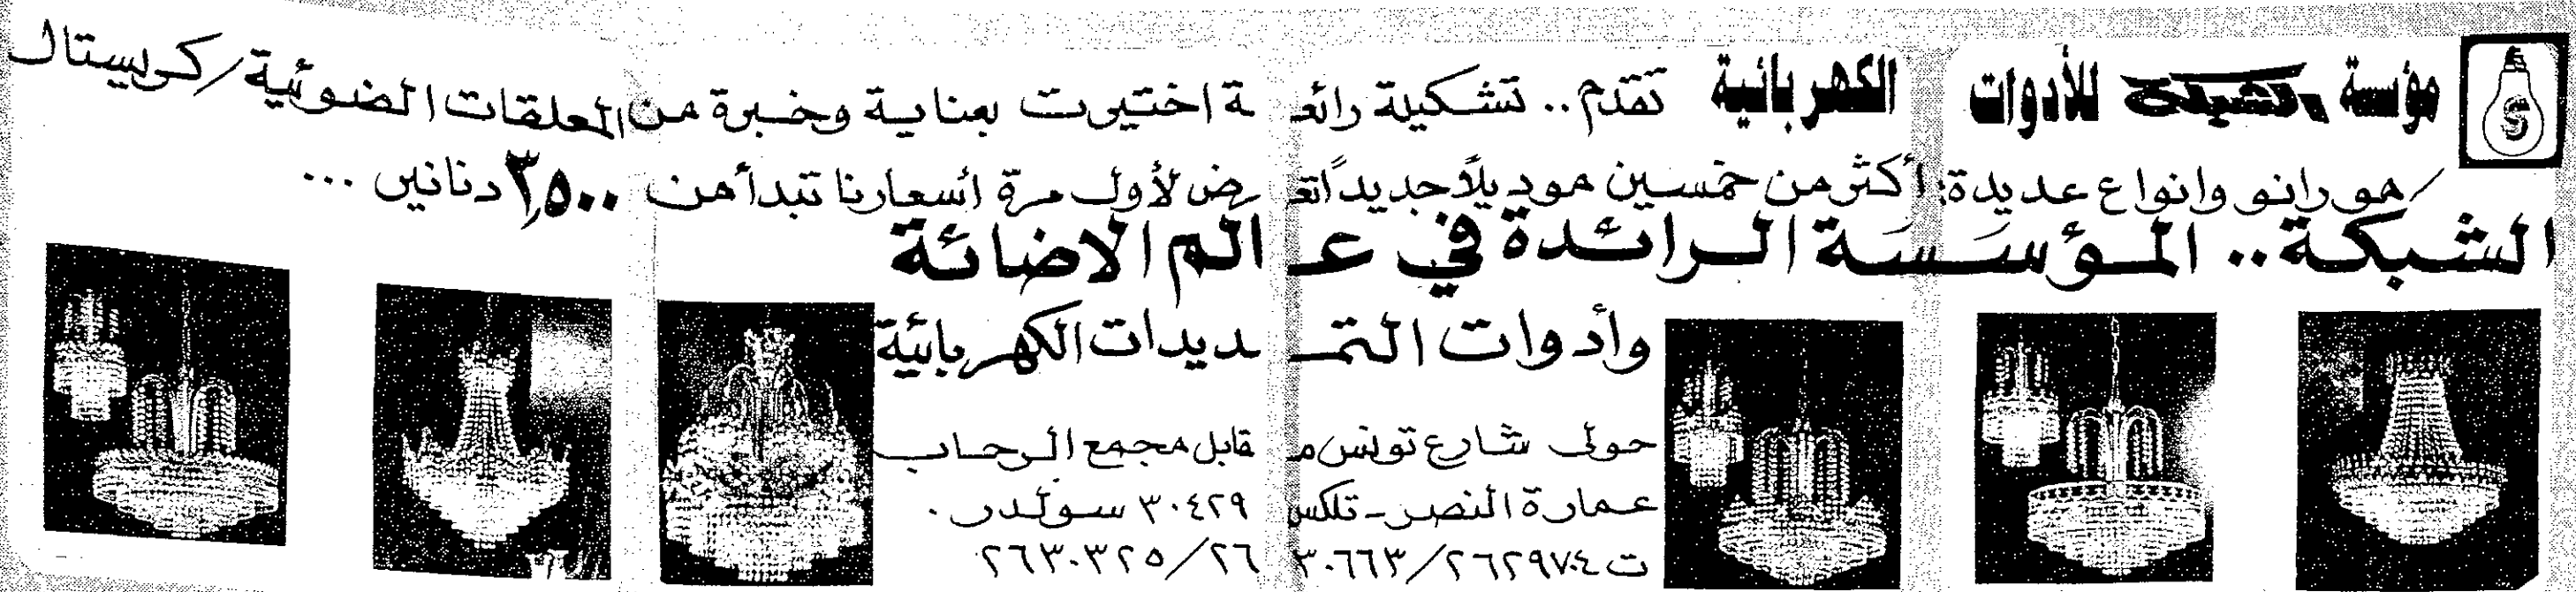 مؤسسة الشبكة للأدوات الكهربائية تقدم.. تشكيلة رائعة اختيرت بعناية وخبرة من المعلقات الضوئية/كريستال
/مورانو وانواع عديدة؛ أكثر من خمسين موديلاً جديداً تعرض لأول مرة أسعارنا تبدأ من ٣٫٥٠٠ دنانير ...
الشبكة.. المؤسسة الرائدة في عالم الاضائة
وأدوات التمديدات الكهربائية
حولى شارع تونس مقابل مجمع الرحاب
عمارة النصر - تلكس ٣٠٤٢٩ سولدر.
ت ٢٦٢٩٧٠٤/٢٦٣٠٦٦٣/٢٦٣٠٣٢٥
S